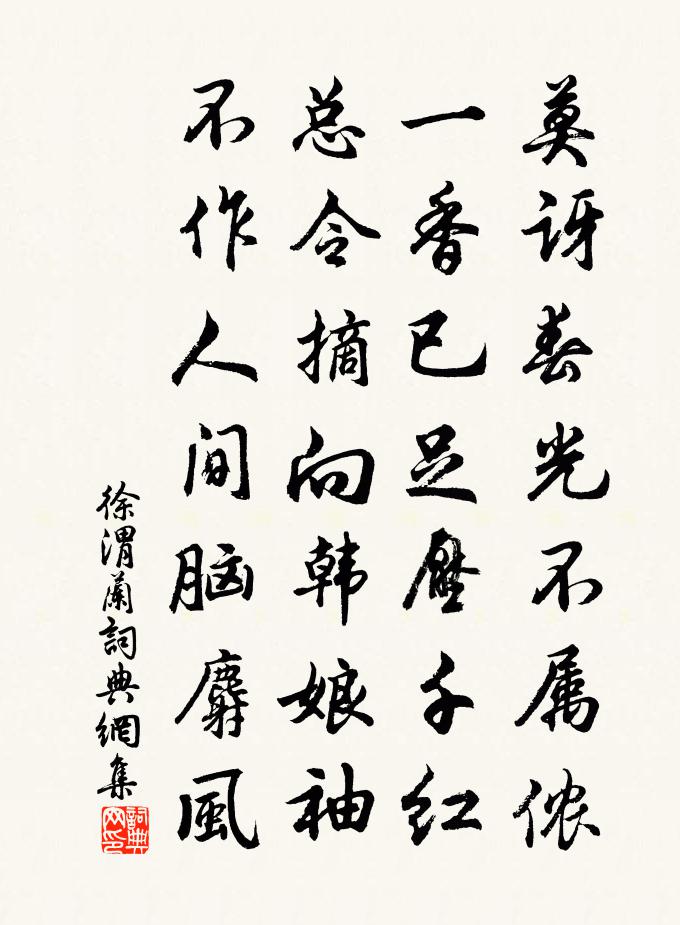 莫讶春光不属侬
一香已足壓千红
总令摘向韩娘袖
不作人间脑麝風
徐渭蘭詞典網集
詞典
网印